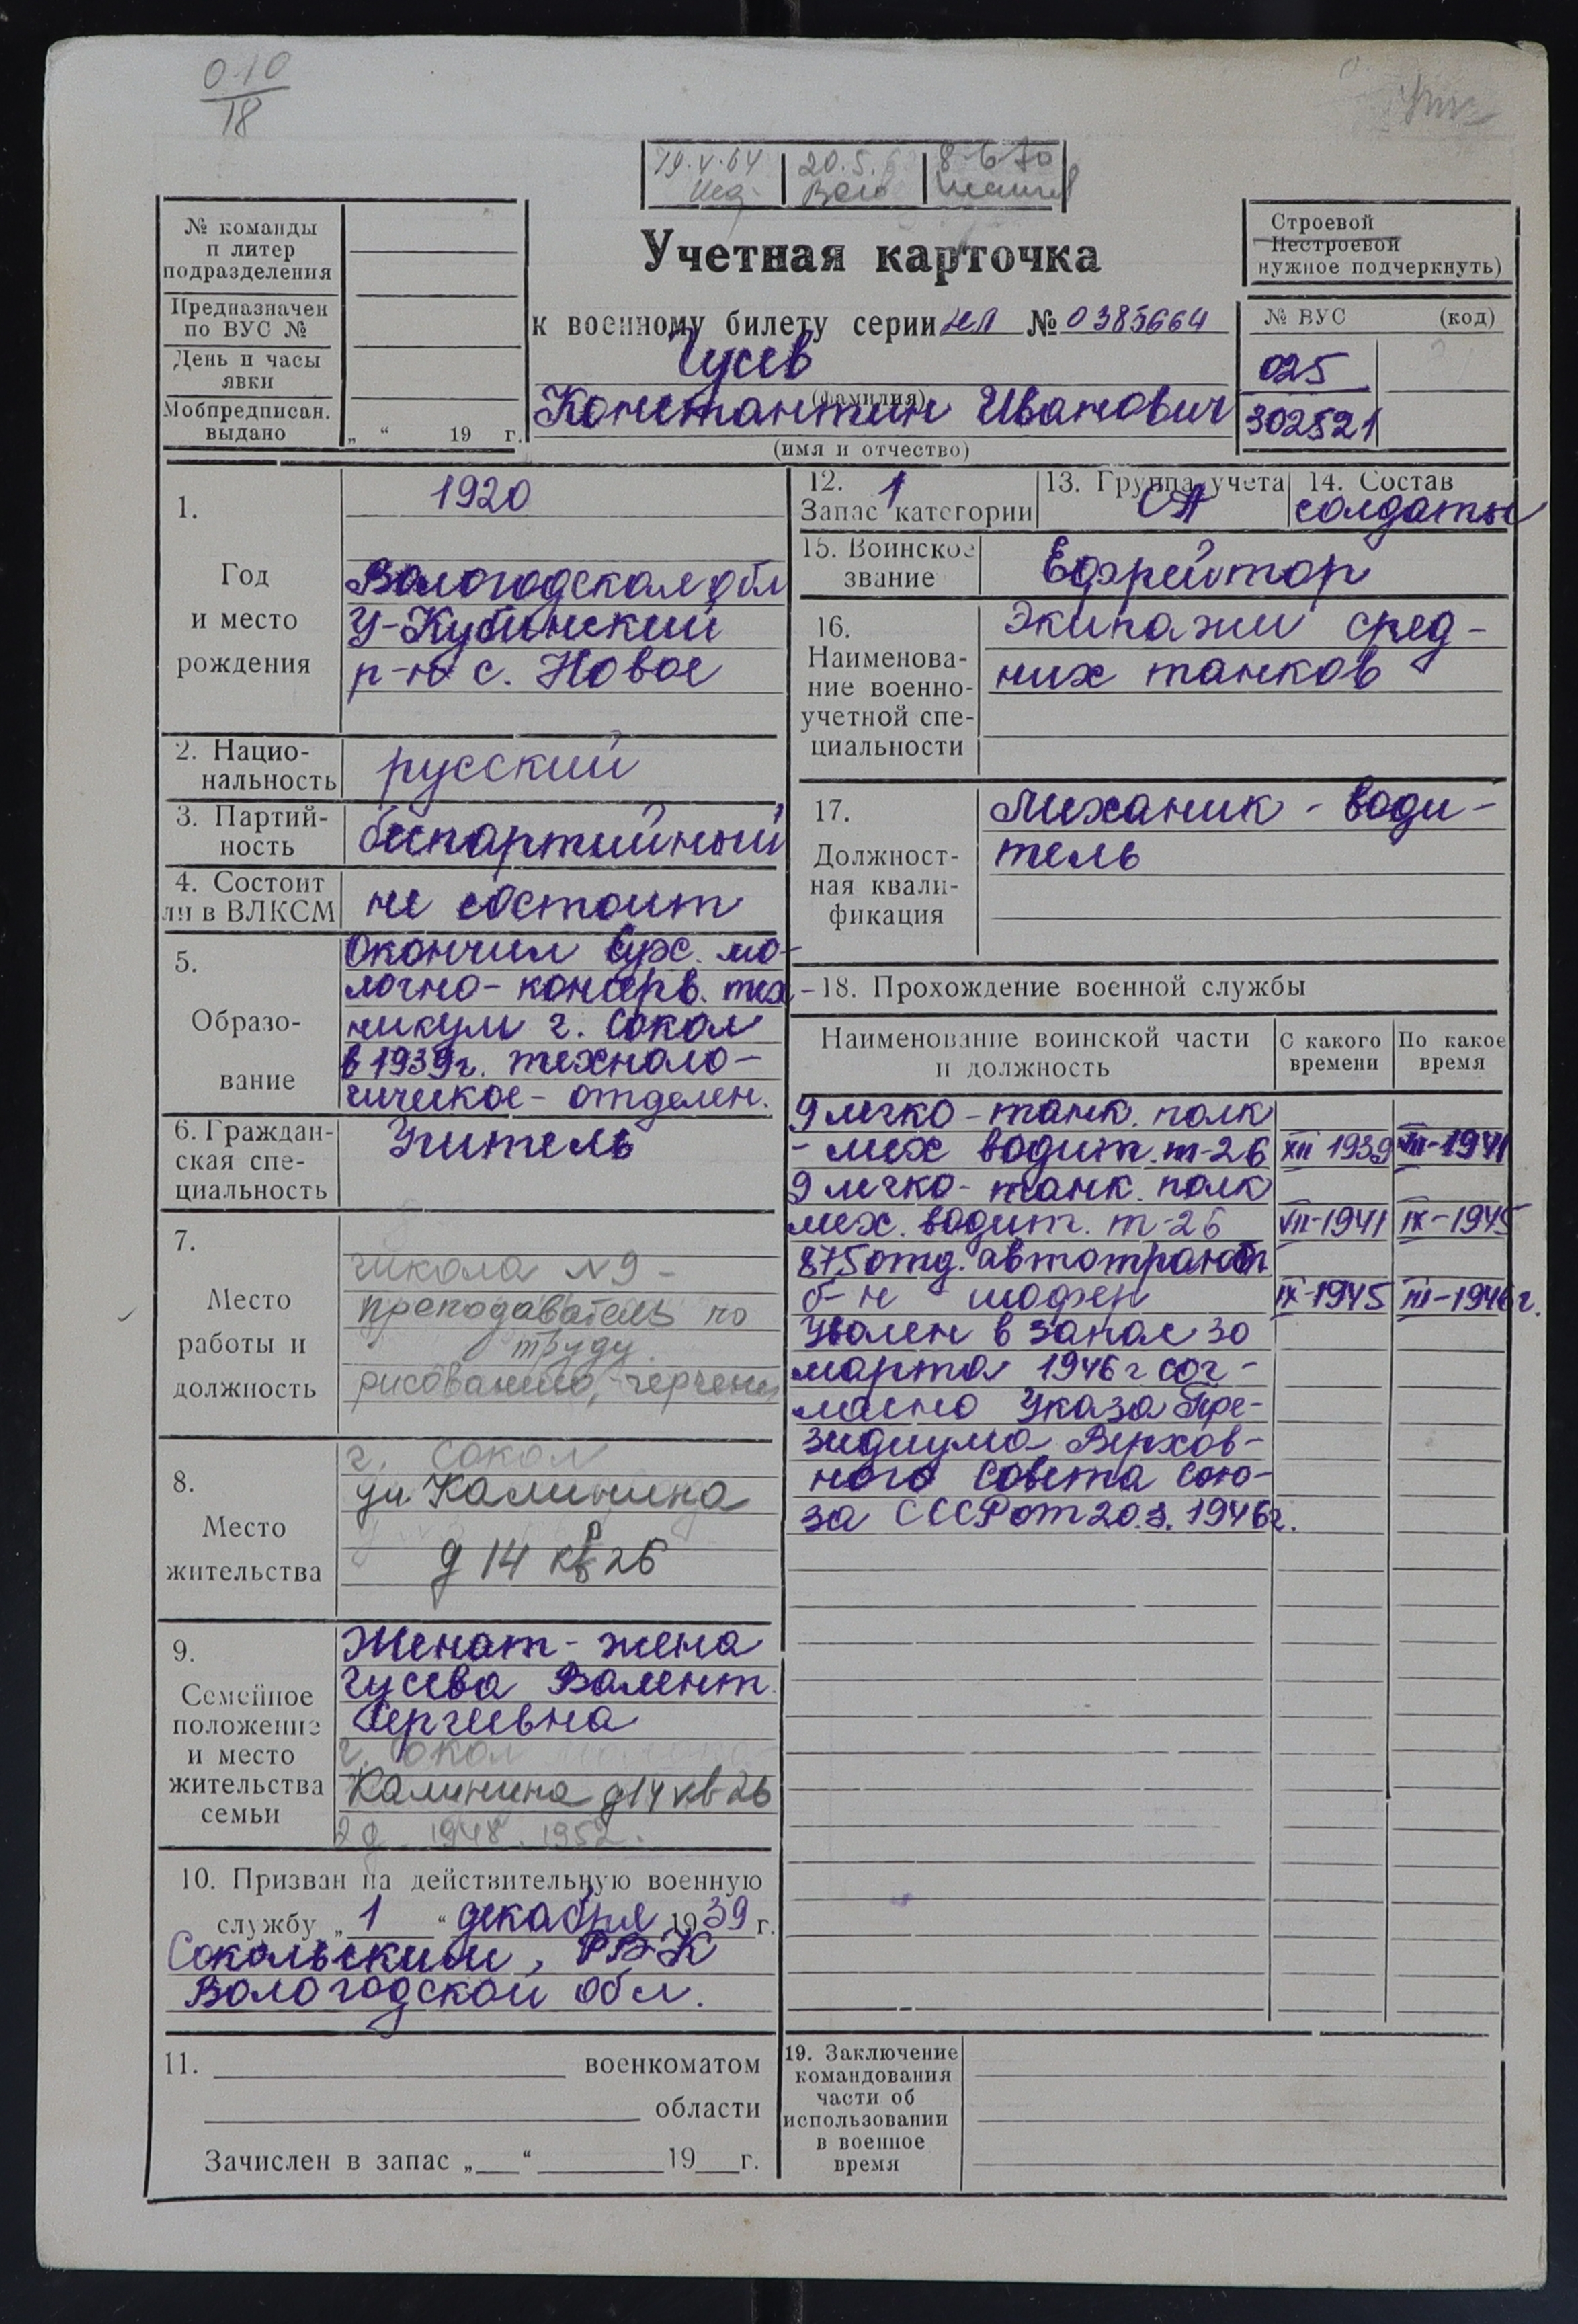 0-10
18
19.V.64
20.5.
8-6 70
№ команды
и литер
подразделения
Предназначен
по ВУС №
День и часы
явки
Мобпредписан.
выдано „ “ 19 г.
Учетная карточка
к военному билету серии НЛ № 0385664
Гусев
(фамилия)
Константин Иванович
(имя и отчество)
Строевой
Нестроевой
нужное подчеркнуть)
№ ВУС (код)
025
302521
1.
Год
и место
рождения
1920
Вологодская обл
У-Кубинский
р-н с. Новое
2. Нацио-
нальность
русский
3. Партий-
ность
беспартийный
4. Состоит
ли в ВЛКСМ
не состоит
5.
Образо-
вание
Окончил Сух. мо-
лочно-консерв. тех-
никум г. Сокол
в 1939г. техноло-
гическое - отделен.
6. Граждан-
ская спе-
циальность
Учитель
7.
Место
работы и
должность
школа №9 -
преподаватель по
труду
рисованию, черчен
8.
Место
жительства
г. Сокол
ул Калинина
д 14 кв 26
9.
Семейное
положение
и место
жительства
семьи
Женат - жена
Гусева Валент.
Сергеевна
г. Сокол
Калинина д14 кв 26
2 д 1948. 1952.
10. Призван на действительную военную
службу „ 1 “ декабря 1939 г.
Сокольским, РВК
Вологодской обл.
11. военкоматом
области
Зачислен в запас „ “ 19 г.
12. 1
Запас категории
13. Группа учета
СА
14. Состав
солдаты
15. Воинское
звание
Ефрейтор
16.
Наименова-
ние военно-
учетной спе-
циальности
Экипажи сред-
них танков
17.
Должност-
ная квали-
фикация
Механик - води-
тель
18. Прохождение военной службы
Наименование воинской части
и должность
С какого
времени
По какое
время
9 легко-танк. полк
- мех водит. т-26 XII 1939 VII-1941
9 легко-танк. полк
мех. водит. т-26 VII-1941 IX-1945
875 отд. автотрансп
б-н шофер IX-1945 III-1946г.
Уволен в запас 30
марта 1946 г сог-
ласно Указа Пре-
зидиума Верхов-
ного Совета Сою-
за СССР от 20.3.1946г.
19. Заключение
командования
части об
использовании
в военное
время